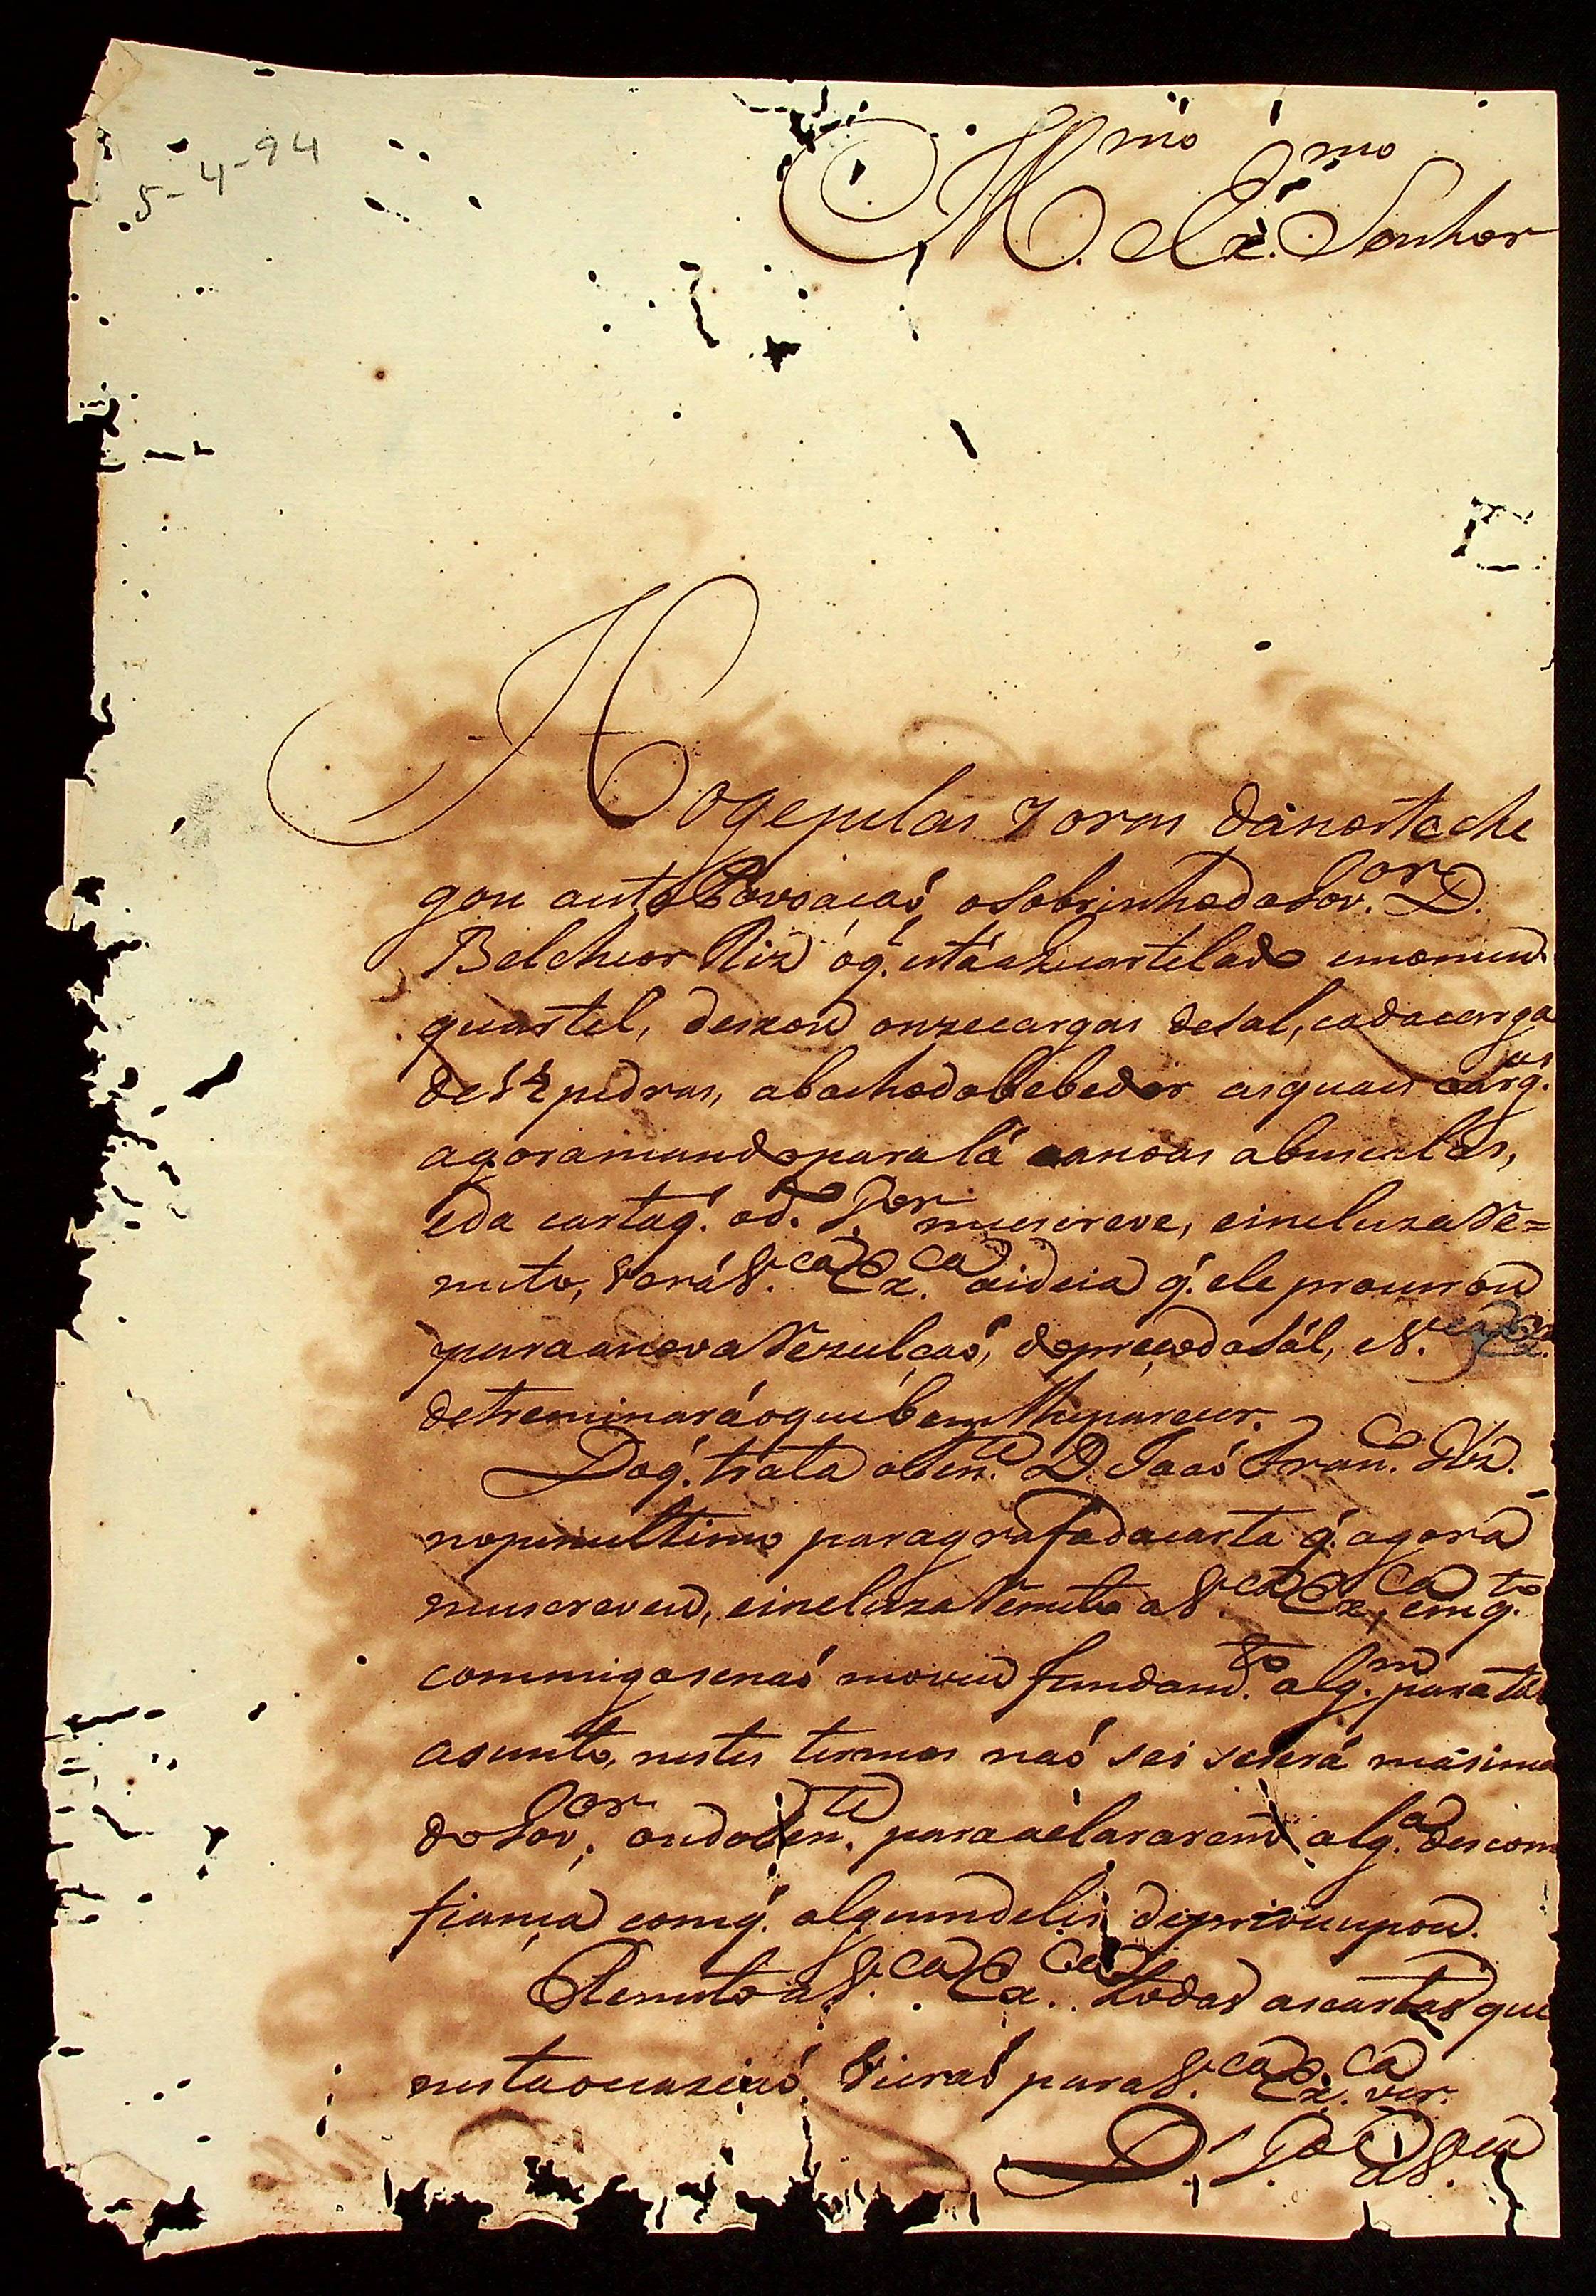 5-4-94
Ill.mo e Ex.mo Senhor
Hoge pelas 7 oras da noite che
gou a esta Povoacaó, o Sobrinho do Gov.or D.
Belchior Riz óq. está aquartelado emomeu
quartel, deixou onze cargas de sal, cada carga
de 12 pedras, abacho do bebedor as quais carg.as
agora mando para lá canoas a buscalas,
e da carta q. o d.o S.or me escreve, e incluza Re=
meto, verá V.ca Ex.ca a ideia q. ele procurou
para a nova Rezulcaó, do preço do Sál, e V.ca Ex.ca
detreminará o que bem lhe parecer.
Do q. trata o Ten.te D. Joaó Fran.co
no penultimo paragrafo da carta q. agora
me escreveu, e incluza Remeto a V.ca Ex.ca, em q.to
commigo senaó moveu fundam.to alg.m para tál
asunto, nestes termos naó sei se será másima
do Gov.or, ou do Ten.te para aclararem alg.a descom
fiança com q. algum deles depriocupou.
Remeto a V.ca Ex.ca todas as cartas que
nesta ocaziaó vieraó para V.ca Ex.ca ver.
D.s G.de a V.ca